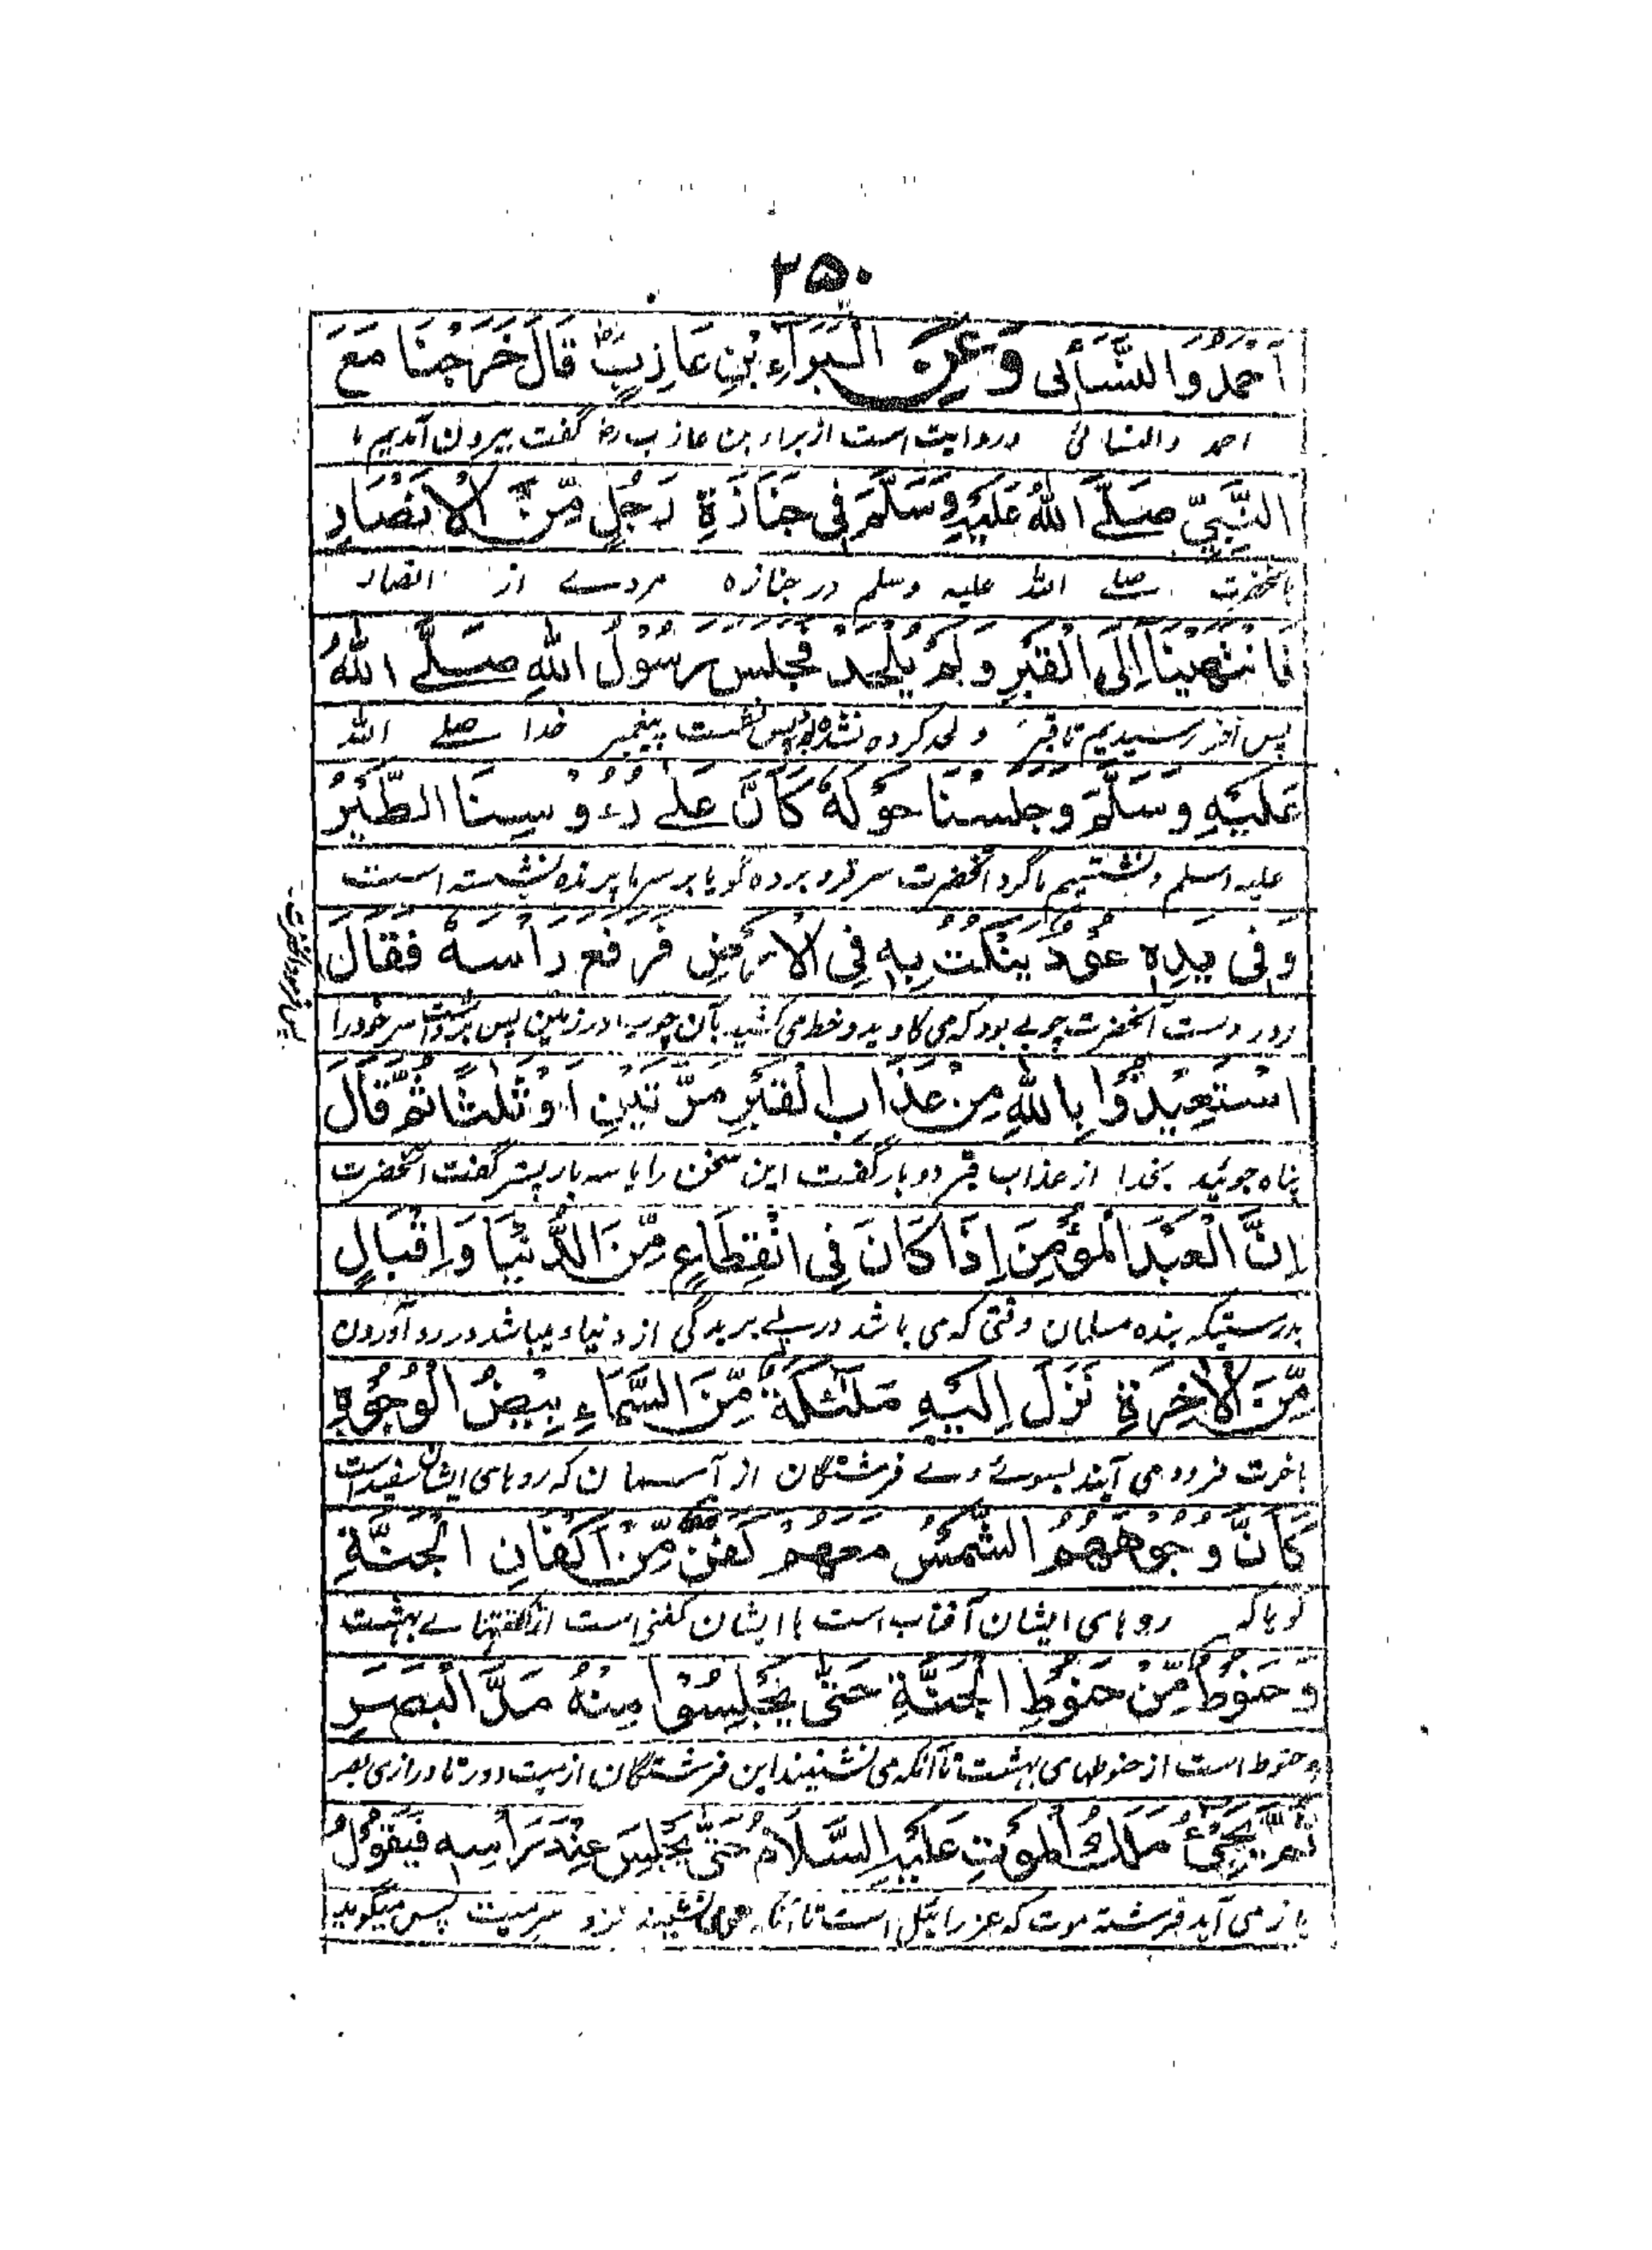 ۲۵۰
اَحْمَدُ وَالنَّسَائِی وَعَنِ الْبَرَآءِ بْنِ عَازِبٍؓ قَالَ خَرَجْنَا مَعَ
احمد والنسائی وروایت است از براء بن عازب رض گفت بیرون آمدیم ما
النَّبِیِّ صَلَّے اللهُ عَلَیْهِ وَسَلَّمَ فِی جَنَازَةِ رَجُلٍ مِّنَ الْاَنْصَارِ
باحضرت صلے الله علیه وسلم در جنازه مردے از انصار
فَانْتَهَیْنَا اِلَی الْقَبْرِ وَلَمْ یُلْحَدْ فَجَلَسَ رَسُوْلُ اللهِ صَلَّے اللهُ
پس آخر رسیدیم تا قبر و لحد کرده نشده بود پس نشست پیغمبر خدا صلے الله
عَلَیْهِ وَسَلَّمَ وَجَلَسْنَا حَوْلَهٗ کَاَنَّ عَلٰے رُءُوْسِنَا الطَّیْرُ
علیه وسلم ونشستیم ما گرد آنحضرت سر فرو برده گویا بر سر ما پرنده نشسته است
وَفِی یَدِهٖ عُوْدٌ یَنْکُتُ بِهٖ فِی الْاَرْضِ فَرَفَعَ رَاْسَهٗ فَقَالَ
ودر دست آنحضرت چوبے بود که می کاوید و خط می کشید بآن چوب در زمین پس برداشت سر خود را
اسْتَعِیْذُوْا بِاللهِ مِنْ عَذَابِ الْقَبْرِ مَرَّتَیْنِ اَوْ ثَلٰثًا ثُمَّ قَالَ
پناه جوئید بخدا از عذاب قبر دو بار گفت این سخن را یا سه بار پستر گفت آنحضرت
اِنَّ الْعَبْدَ الْمُؤْمِنَ اِذَا کَانَ فِی انْقِطَاعٍ مِّنَ الدُّنْیَا وَاِقْبَالٍ
بدرستیکه بنده مسلمان وقتی که می باشد در بریدگی از دنیا و میباشد در رو آوردن
مِّنَ الْاٰخِرَةِ نَزَلَ اِلَیْهِ مَلٰٓئِکَةٌ مِّنَ السَّمَاءِ بِیْضُ الْوُجُوْهِ
باخرت فرود می آیند بسوئے وے فرشتگان از آسمان که روهای ایشان سفید است
کَاَنَّ وُجُوْهَهُمُ الشَّمْسُ مَعَهُمْ کَفَنٌ مِّنْ اَکْفَانِ الْجَنَّةِ
گویا که روهای ایشان آفتاب است با ایشان کفنی است از کفنهائے بهشت
وَّحَنُوْطٌ مِّنْ حَنُوْطِ الْجَنَّةِ حَتّٰی یَجْلِسُوْا مِنْهُ مَدَّ الْبَصَرِ
وحنوط است از حنوطهای بهشت تا آنکه می نشینند این فرشتگان از میت دور تا درازی بصر
ثُمَّ یَجِیْئُ مَلَکُ الْمَوْتِ عَلَیْهِ السَّلَامُ حَتّٰی یَجْلِسَ عِنْدَ رَاْسِهٖ فَیَقُوْلُ
باز می آید فرشته موت که عزرائیل است تا آنکه می نشیند نزد سر میت پس میگوید